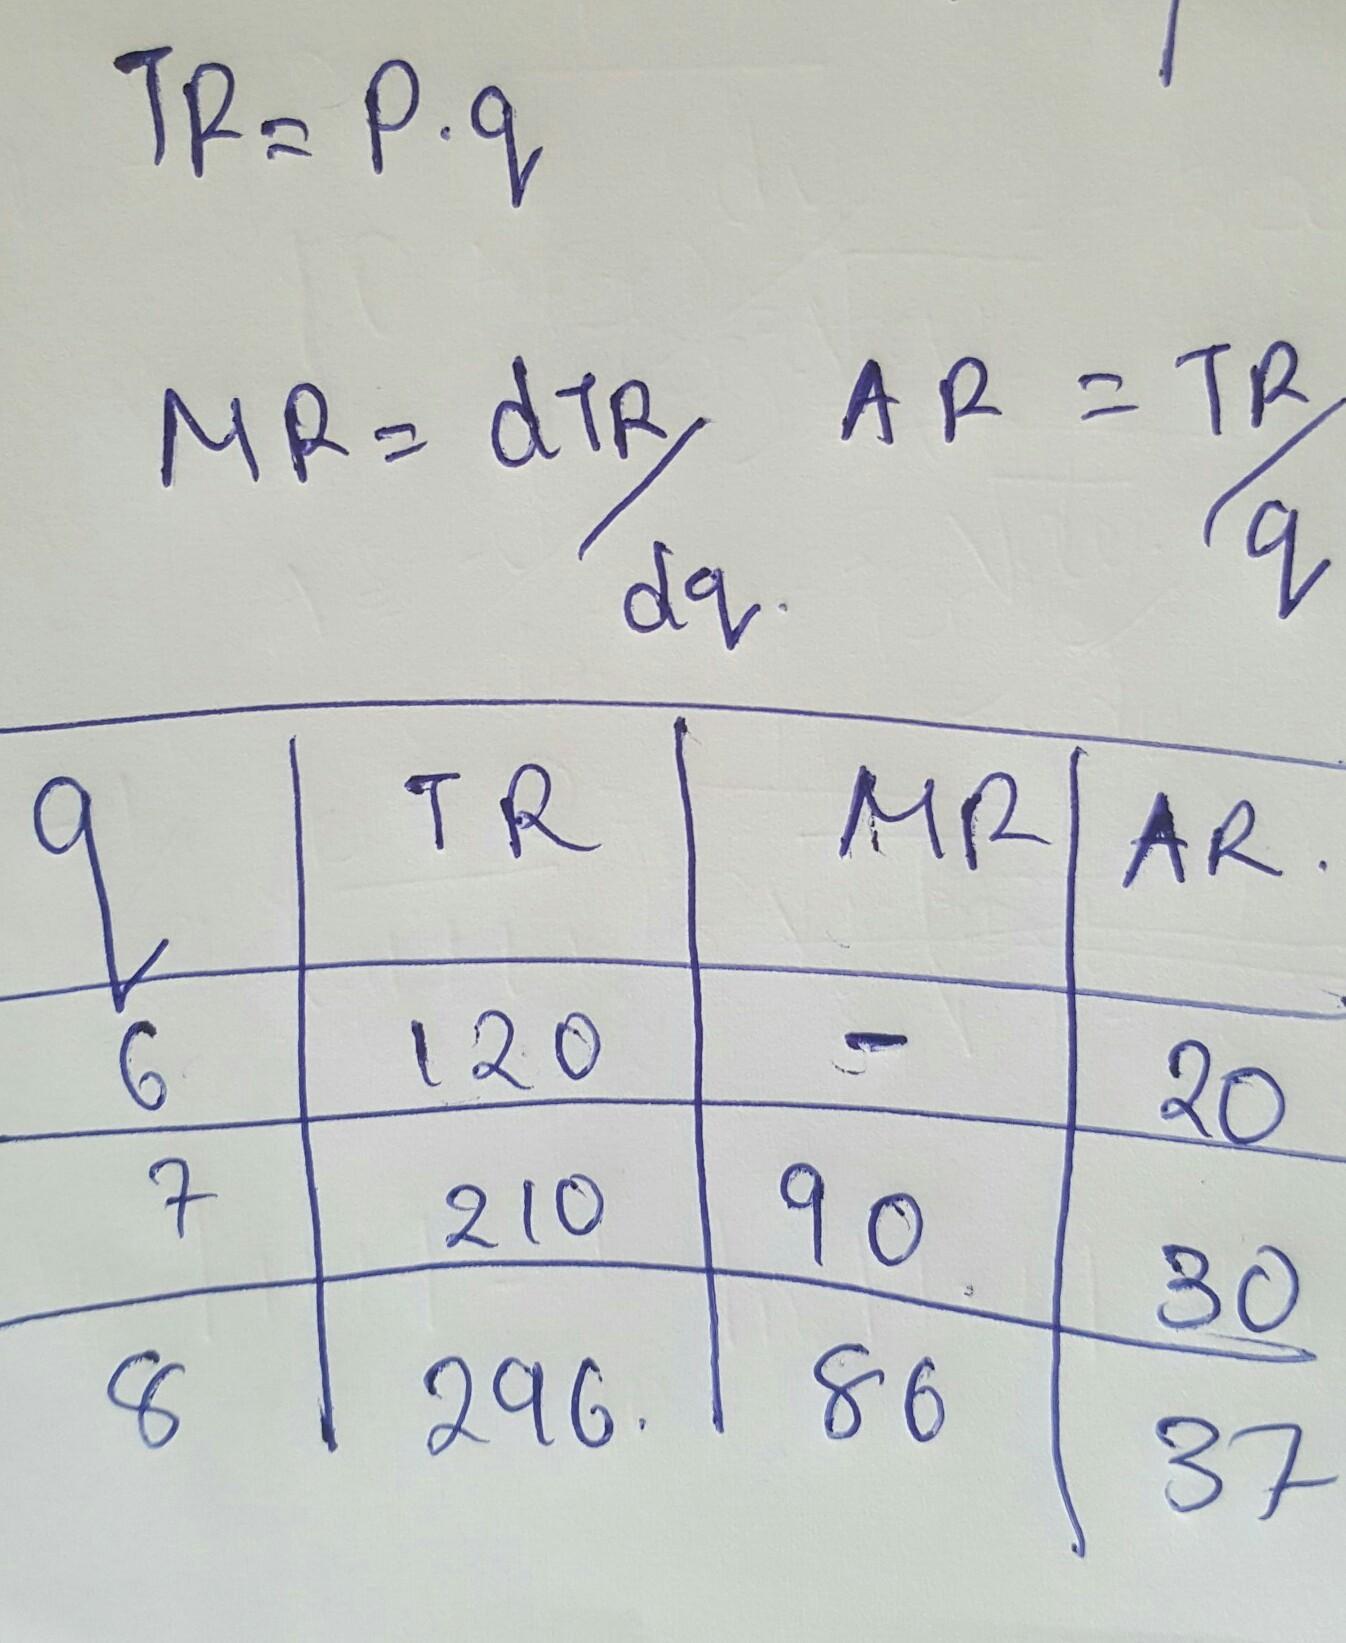 TR = P.q
MR = dTR/dq. AR = TR/q
q TR MR AR.
6 120 - 20
7 210 90 30
8 296. 86 37